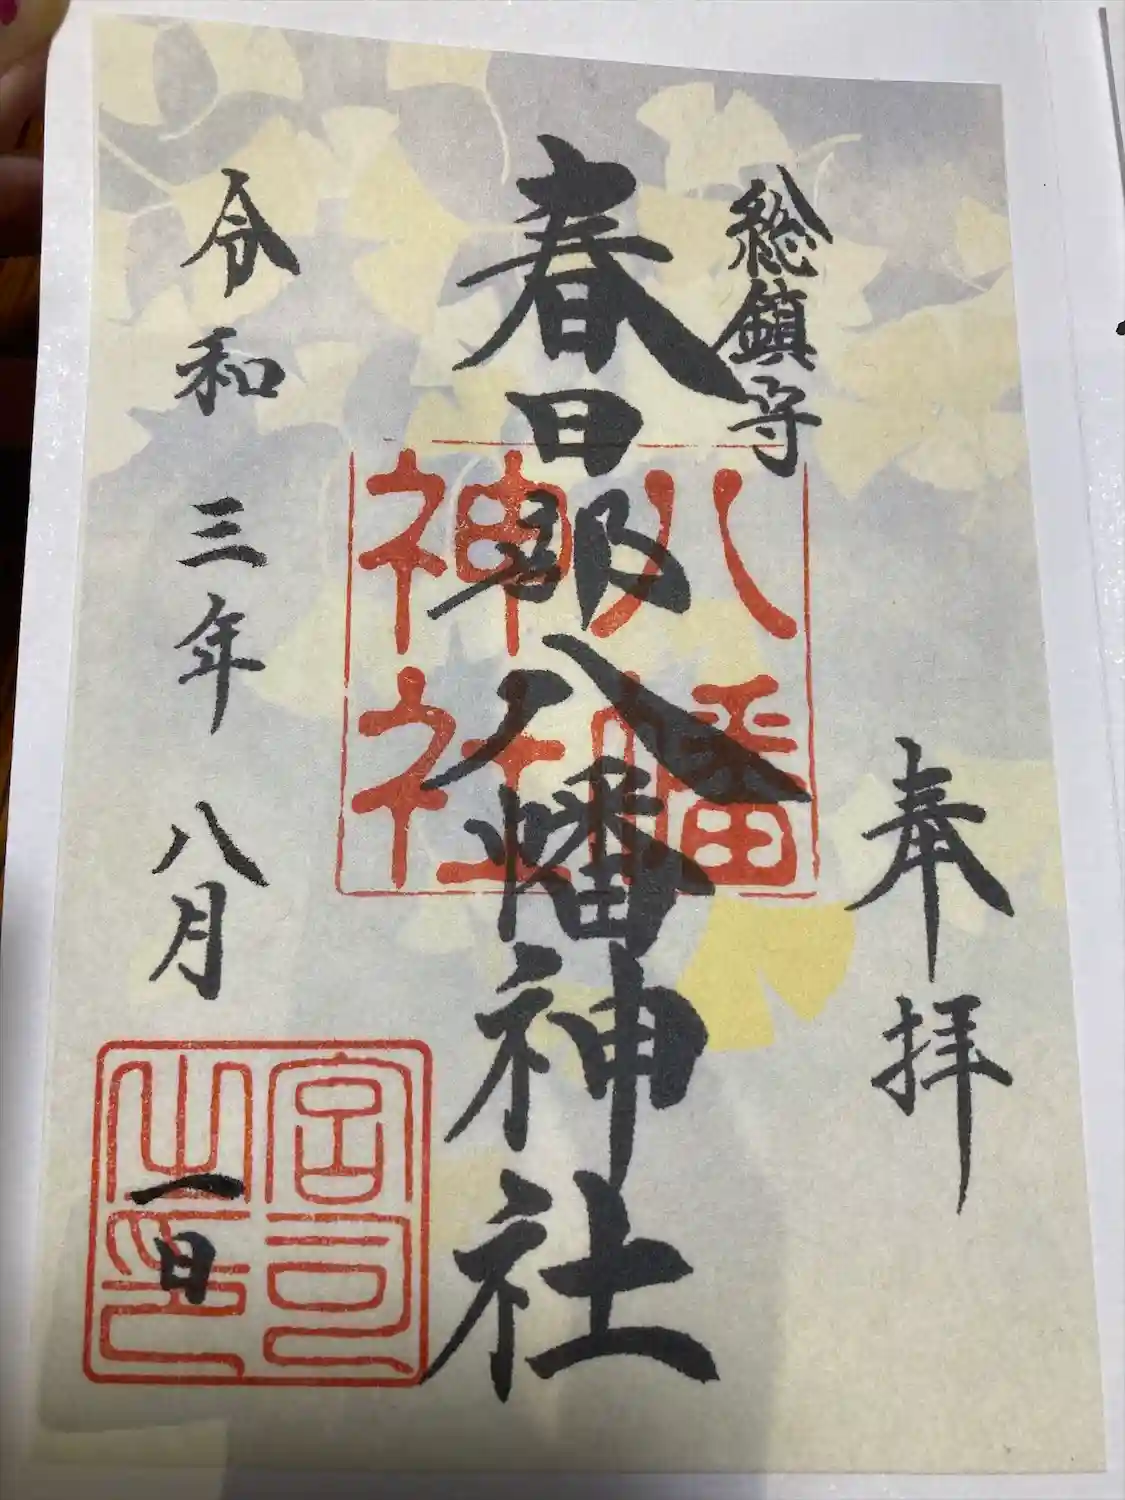 奉拝
総鎮守
春日部八幡神社
八幡
神社
令和三年八月一日
宮司
之印